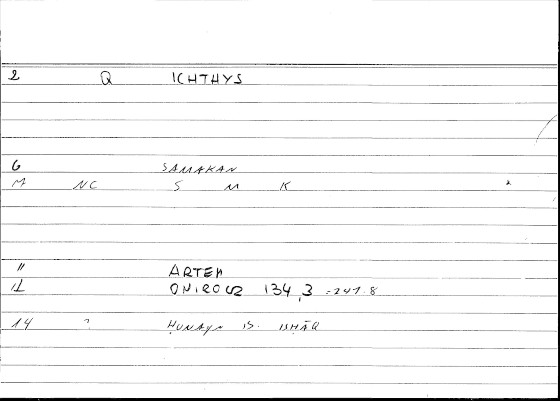 2 Q ICHTHYS
6 SAMAKAN
M NC S M K
" ARTEM
12 ONIROCR 134,3 = 247.8
14 ḤUNAYN B. ISḤĀQ